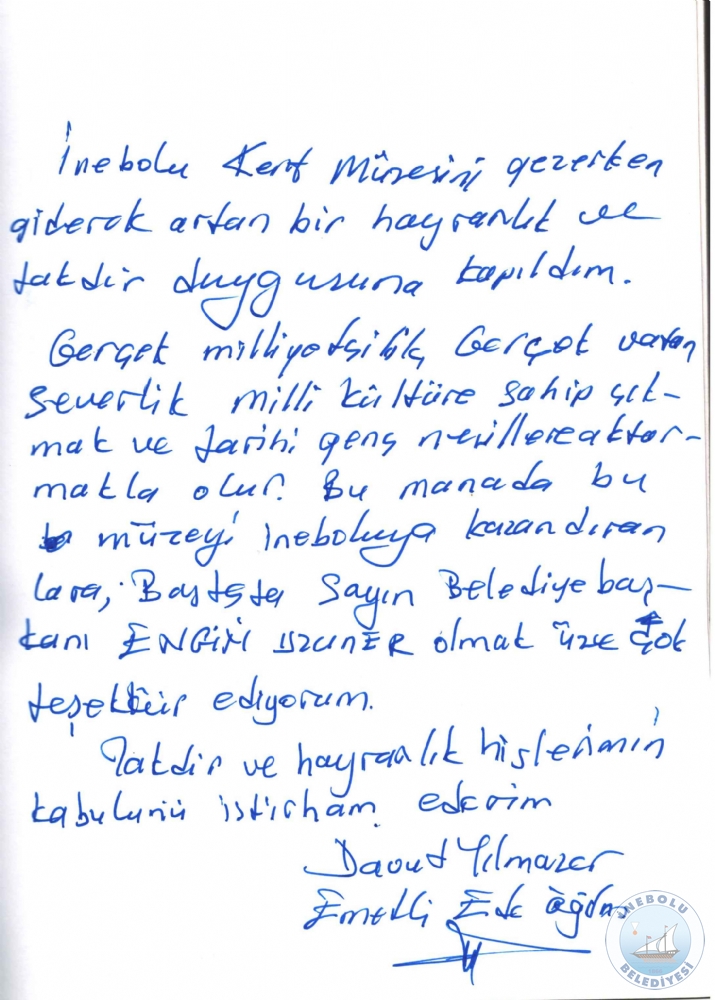 İnebolu Kent Müzesini gezerken
giderek artan bir hayranlık ve
takdir duygusuna kapıldım.
Gerçek milliyetçilik, Gerçek vatan
severlik milli kültüre sahip çık-
mak ve tarihi genç nesillere aktar-
makla olur. Bu manada bu
müzeyi İneboluya kazandıran
lara, Başta Sayın Belediye baş-
kanı ENGİN UZUNER olmak üzre çok
teşekkür ediyorum.
Takdir ve hayranlık hislerimin
kabulünü istirham ederim
Davut Yılmazer
Emekli
İNEBOLU
BELEDİYESİ